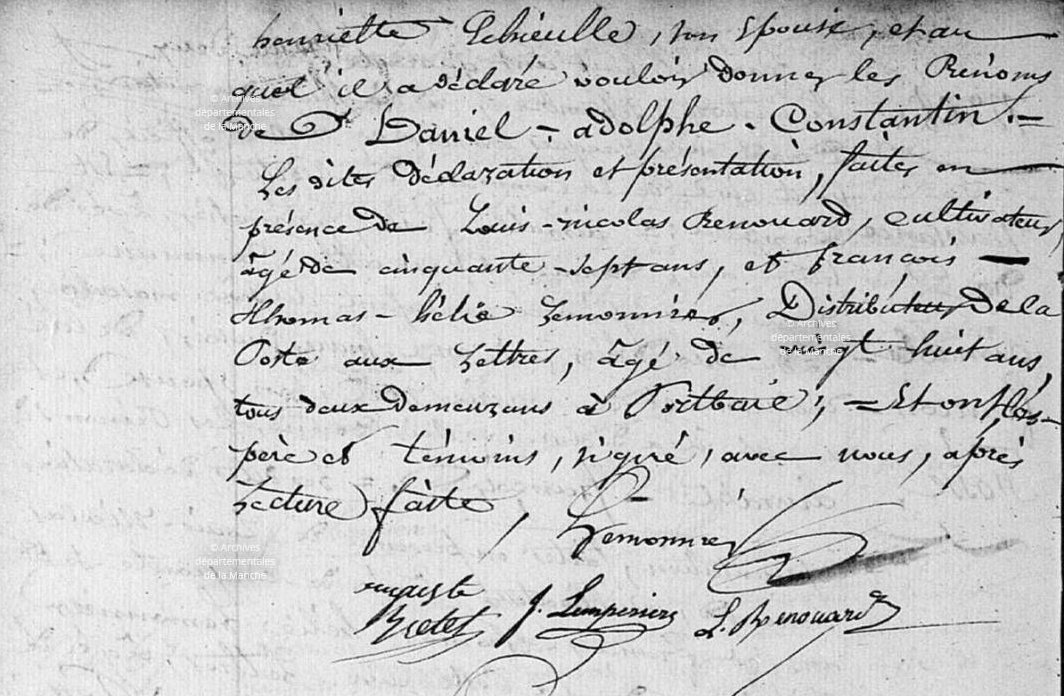 henriette Lehieulle, son Epouse, et au
quel il a déclaré vouloir donner les Prénoms
de Daniel - adolphe - Constantin. -
Les dites déclaration et présentation, faites en
présence de Louis - nicolas Renouard, cultivateur,
âgé de cinquante - sept ans, et françois -
thomas - hélie Lemonnier, Distributeur de la
Poste aux Lettres, âgé de vingt huit ans,
tous deux demeurans à Portbail; - Et ont les
père et témoins, signé, avec nous, après
Lecture faite,
Lemonnier
auguste
J. Lemperiere L. Renouard
© Archives
départementales
de la Manche
© Archives
départementales
de la Manche
© Archives
départementales
de la Manche